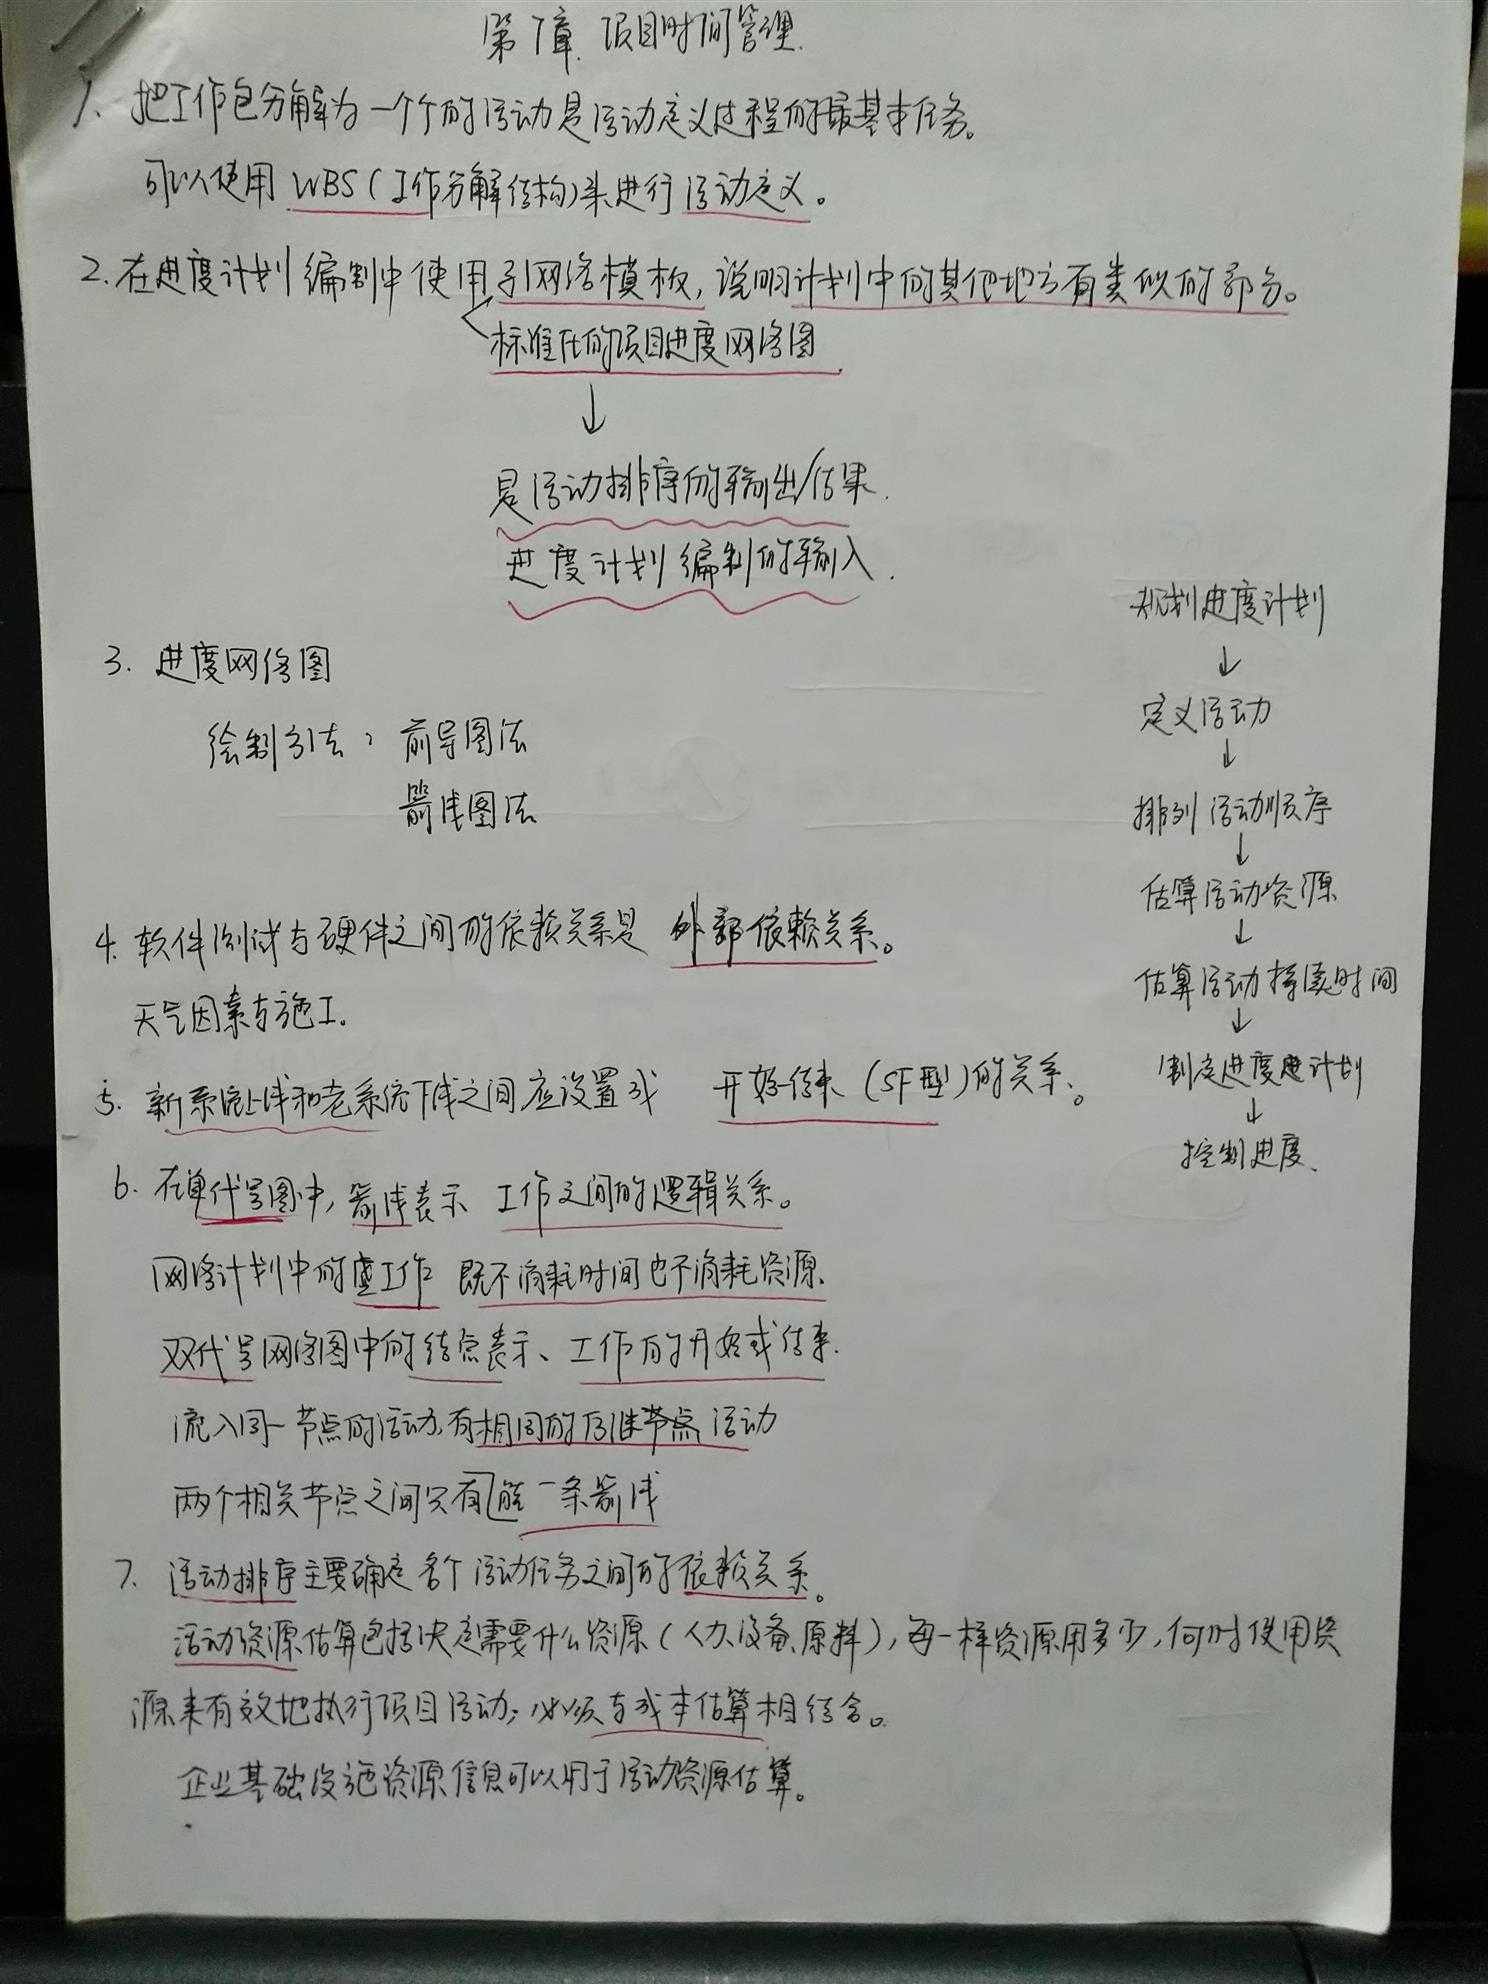 第7章 项目时间管理
1、把工作包分解为一个个的活动是活动定义过程的最基本任务。
可以使用 WBS(工作分解结构)来进行活动定义。
2.在进度计划编制中使用子网络模板,说明计划中的其他地方有类似的部分。
标准化的项目进度网络图
↓
是活动排序的输出/结果.
进度计划编制的输入.
3.进度网络图
绘制方法: 前导图法
箭线图法
4.软件测试与硬件之间的依赖关系是 外部依赖关系。
天气因素与施工.
5.新系统上线和老系统下线之间应设置成 开始-结束(SF型)的关系。
6.在单代号图中,箭线表示 工作之间的逻辑关系。
网络计划中的虚工作 既不消耗时间也不消耗资源.
双代号网络图中的结点表示、工作的开始或结束.
流入同一节点的活动,有相同的后继节点活动
两个相关节点之间只有能一条箭线
7.活动排序主要确定各个活动任务之间的依赖关系。
活动资源估算包括决定需要什么资源(人力、设备、原料),每一样资源用多少,何时使用资
源来有效地执行项目活动;必须与成本估算相结合。
企业基础设施资源信息可以用于活动资源估算。
规划进度计划
↓
定义活动
↓
排列活动顺序
↓
估算活动资源
↓
估算活动持续时间
↓
制定进度计划
↓
控制进度.